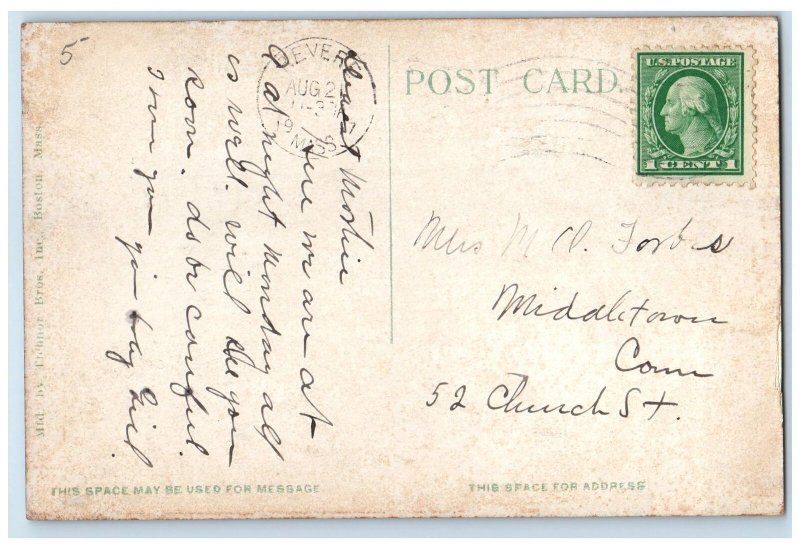 5
REVERE
AUG 2
MASS
POST CARD.
U.S. POSTAGE
1 CENT 1
Dearest Mother
here we are at
a night Monday all
is well. will see you
soon. do be careful.
I love you your baby Girl.
Mrs M D. Forbes
Middletown
Conn
52 Church St.
Mfd. by Tichnor Bros. Inc., Boston, Mass.
THIS SPACE MAY BE USED FOR MESSAGE
THIS SPACE FOR ADDRESS